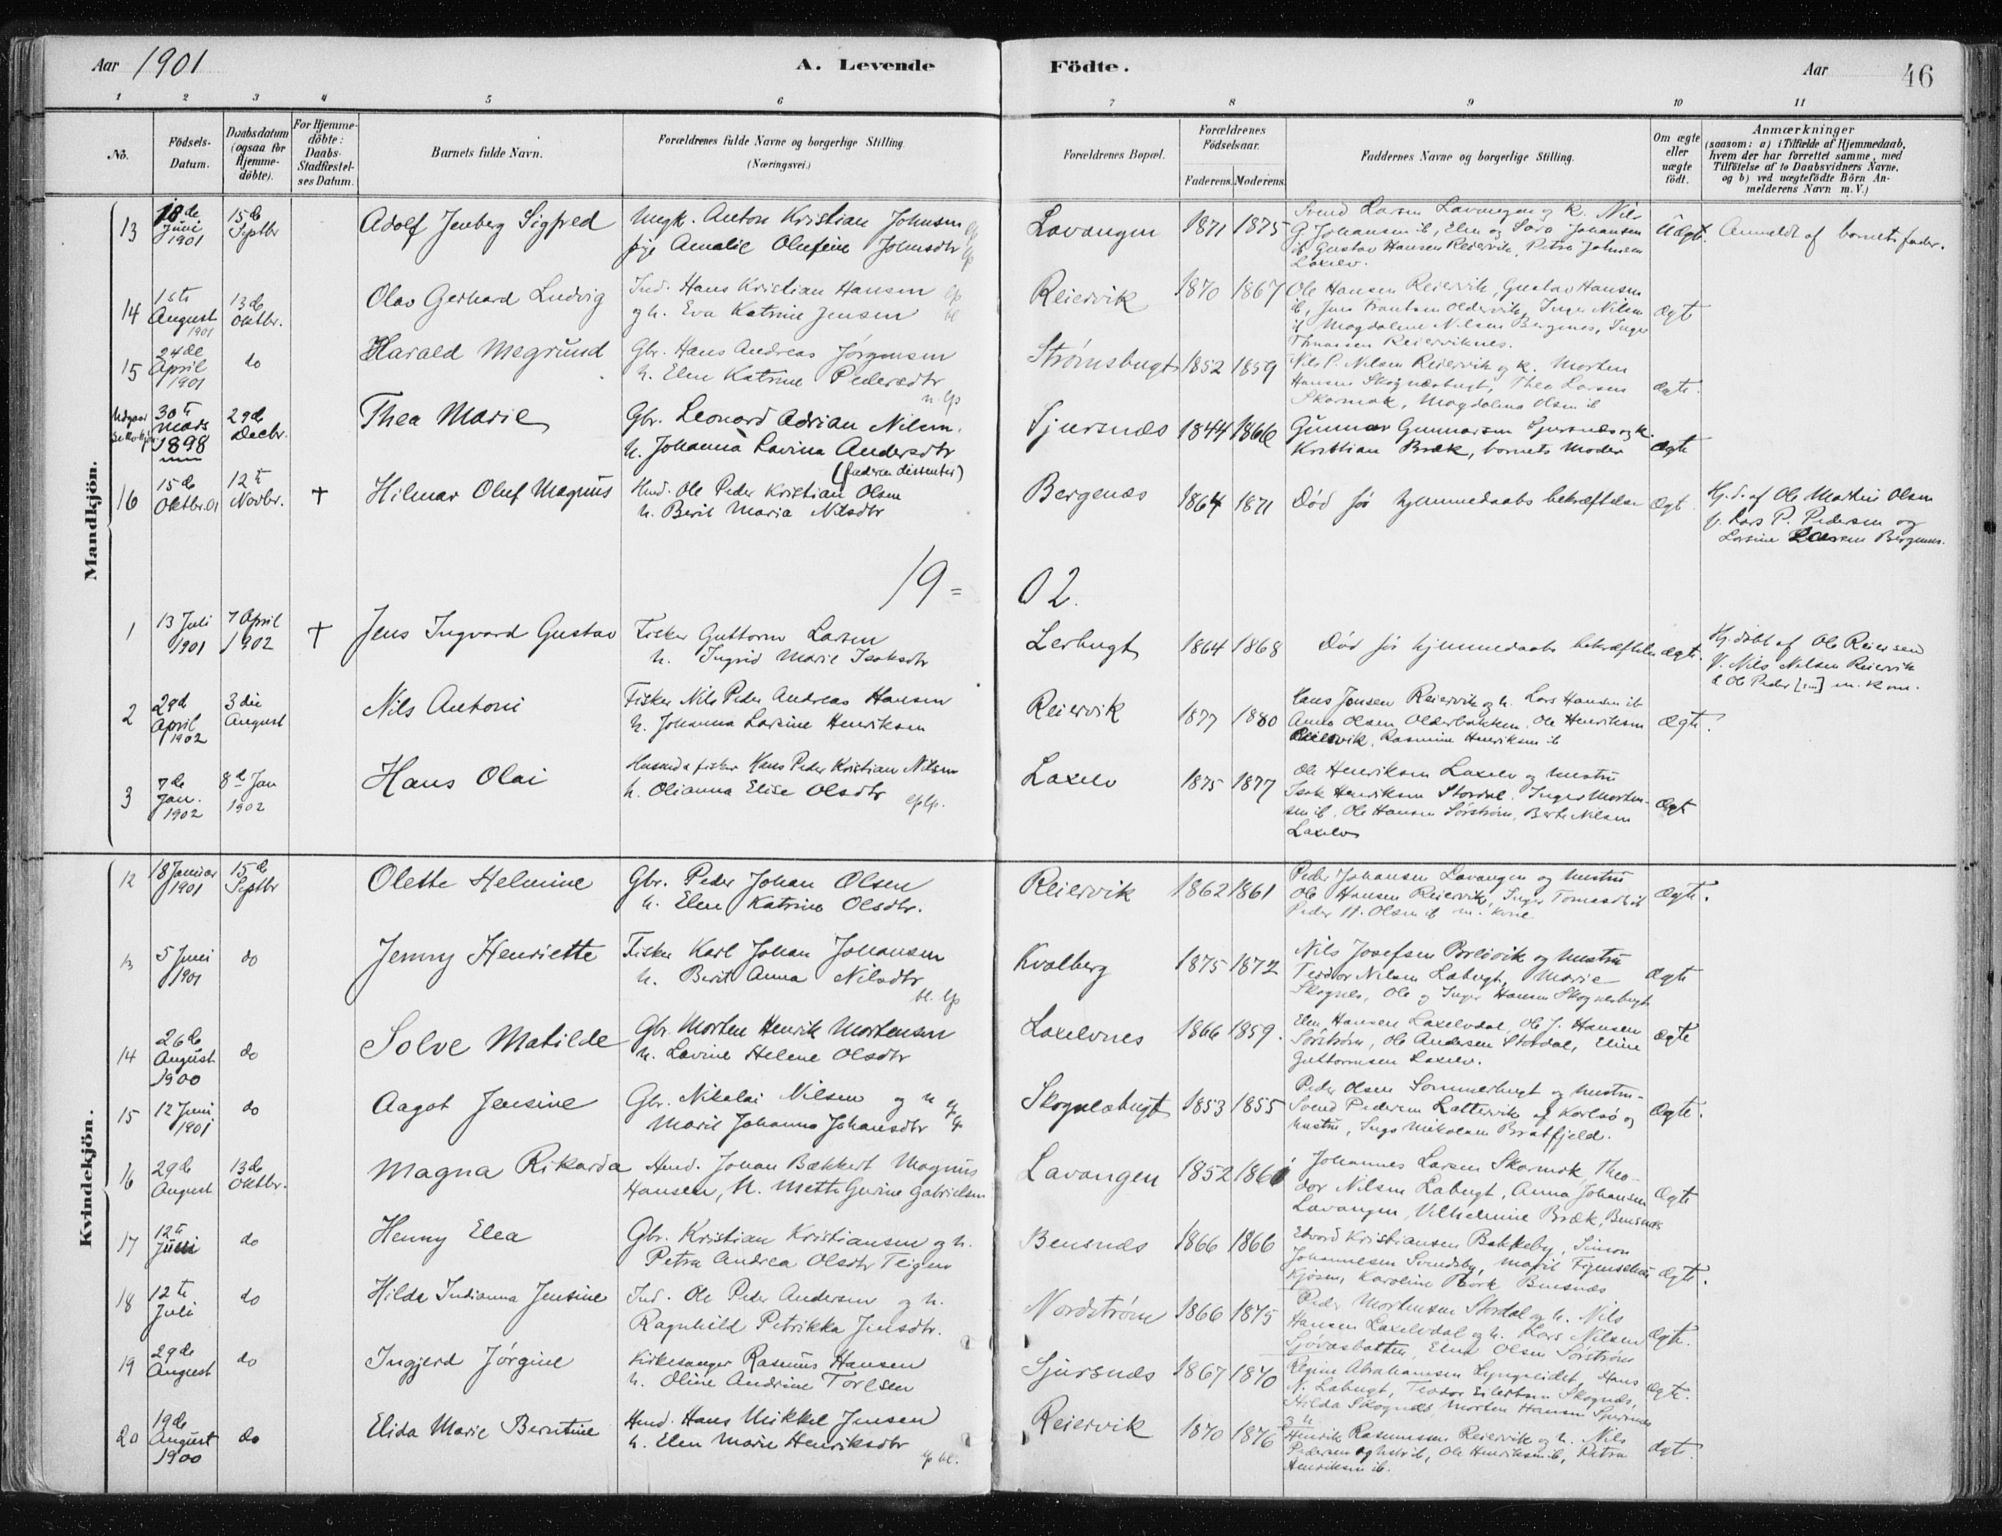 Aar 1901
A. Levende
Födte.
Aar
46
1 2 3 4 5 6 7 8 9 10 11
No.
Födsels-Datum.
Daabsdatum (ogsaa for Hjemme-döbte).
For Hjemme-döbte: Daabs-Stadfæstel-ses Datum.
Barnets fulde Navn.
Forældrenes fulde Navne og borgerlige Stilling. (Næringsvei.)
Forældrenes Bopæl.
Forældrenes Födselsaar.
Faderens. Moderens.
Faddernes Navne og borgerlige Stilling.
Om ægte eller uægte födt.
Anmærkninger
(saasom: a) i Tilfælde af Hjemmedaab,
hvem der har forrettet samme, med
Tilföielse af to Daabsvidners Navne.
og b) ved uægtefödte Börn An-
melderens Navn m. V.)
Mandkjön.
13 18de Juni 1901 15de Septbr Adolf Jenberg Sigfred Ungk. Anton Kristian Johnsen
pige Amalie Olufine Johnsdtr
Lavangen 1871 1875 Svend Larsen Lavangen og k. Nils
G. Johansen ib, Elen og Sara Johansen
ib Gustav Hansen Reiervik, Petra Johnsen
Laxelv.
Uægt. Anmeldt af barnets fader.
14 1ste August 1901 13de Oktbr. Olav Gerhard Ludvig Ind. Hans Kristian Hansen
og h. Eva Katrine Jensen
Reiervik 1870 1867 Ole Hansen Reiervik, Gustav Hansen
ib, Jens Frantsen Oldervik, Inger Nilsen
ib Magdalene Nilsen Bergenes, Inger
Thomassen Reierviknes.
Ægte
15 24de April 1901 do Harald Megrund Gbr. Hans Andreas Jørgensen
h. Elen Katrine Pedersdtr
Strømsbugt 1852 1859 Nils P. Nilsen Reiervik og k. Morten
Hansen Skognæsbugt, Thea Larsen
Skarmok, Magdalena Olsen ib
Ægte.
30te Mars 1898 29de Decbr. Thea Marie Gbr. Leonard Adrian Nilsen.
h. Johanna Lavina Andersdtr
(faderen dissenter)
Sjursnæs 1844 1866 Gunnar Gunnarsen Sjursnæs og k.
Kristian Bræk, barnets Moder
Ægte
16 15de Oktbr. 01 12te Novbr. † Hilmar Oluf Magnus Hmd. Ole Peder Kristian Olsen
h. Berit Maria Nilsdtr
Bergenæs 1864 1871 Død før hjemmedaabs bekræftelse Ægt. Hj. d. af Ole Martin Olsen
f. Lars P. Pedersen og
Larsine Larsen Bergenes.
19 = 02.
1 13 Juli 1901 7 April 1902 † Jens Ingvard Gustav Fisker Guttorm Larsen
h. Ingrid Marie Isaksdtr
Lerbugt 1864 1868 Død før hjemmedaabs bekræftelse Ægte. Hj. døbt af Ole Reiersen
V. Nils Nilsen Reiervik
& Ole Peder m. kone.
2 22d April 1902 3die August Nils Antoni Fisker Nils Peder Andreas Hansen
h. Johanna Larsine Henriksen
Reiervik 1877 1880 Hans Jensen Reiervik og h. Lars Hansen ib
Anna Olsen Olderbakken, Ole Henriksen
Reiervik, Rasmine Henriksen ib
Ægte.
3 7de Jan. 1902 8de Jan 1902 Hans Olai Husmd & fisker Hans Peder Kristian Nilsen
h. Olianna Elise Olsdtr
Laxelv 1875 1877 Ole Henriksen Laxelv og hustru
Isak Henriksen Stordal. Inger Morten-
sen ib, Ole Hansen Sørstrøm, Berte Nilsen
Laxelv
Ægt
Kvindekjön.
12 18 Januar 1901 15de Septbr Olette Helmine Gbr. Peder Johan Olsen
h. Elen Katrine Olsdtr.
Reiervik 1862 1861 Peder Johansen Lavangen og hustru
Ole Hansen Reiervik, Inger Tomasdtr ib
Peder H. Olsen ib m. kone
Ægte.
13 5 Juni 1901 do Jenny Henriette Fisker Karl Johan Johansen
h. Berit Anna Nilsdtr
Kvalberg 1875 1872 Nils Josefsen Breivik og hustru
Teodor Nilsen Labugt, Marie
Skognes, Ole og Inger Hansen Skognesbugt
Ægte
14 26de August 1900 do Solve Matilde Gbr. Morten Henrik Mortensen
h. Lavine Helene Olsdtr
Laxelvnes 1866 1859. Elen Hansen Laxelvdal, Ole J. Hansen
Sørstrøm, Ole Andersen Stordal, Eline
Guttormsen Laxelv.
Ægte
15 12 Juni 1901 do Aagot Jensine Gbr. Nikolai Nilsen og h
Marie Johanna Johansdtr
Skognesbugt 1853 1855 Peder Olsen Sommerbugt og hustru-
Svend Pedersen Lattervik af Karlsø og
hustru, Inga Mikalsen Bratfjeld.
Ægte.
16 29de August 13de Oktbr. Magna Rikarda Hmd. Johan Bækkert Magnus
Hansen, h. Mette Gurine Gabrielsen
Lavangen 1852 1860 Johannes Larsen Skarmok, Theo-
dor Nilsen Labugt, Anna Johansen
Lavangen, Vilhelmine Bræk, Bensnæs
Ægte
17 12te Juni do Henny Elea Gbr. Kristian Kristiansen og h.
Petra Andrea Olsdtr Teigen
Bensnæs 1866 1866 Edvard Kristiansen Bakkeby, Simon
Johannesen Svendsby, Marie
Kjøsen, Karoline Bensnæs
Ægte.
18 12te Juli do Hilda Indianna Jensine Ind. Ole Peder Andersen og h.
Ragnhild Petrikka Jensdtr.
Nordstrøm 1866 1875 Peder Mortensen Stordal og h. Nils
Hansen Laxelvdal og h. Lars Nilsen
Sjøvasbotten, Elen Olsen Sørstrøm
Ægte.
19 29de August do Ingjerd Jørgine Kirkesanger Rasmus Hansen
h. Oline Andrine Torlsen
Sjursnæs 1867 1870 Regine Abrahamsen Lyngseidet, Hans
N. Labugt, Teodor Eilertsen Skognæs,
Hilda Skognæs, Morten Hansen Sjursnæs
Ægte.
20 19de August 1900 do Elida Marie Berntine Hmd. Hans Mikkel Jensen
h. Elen Marie Henriksdtr
Reiervik 1870 1876 Henrik Rasmussen Reiervik og h. Nils
Pedersen og hstr ib, Ole Henriksen ib, Petra
Henriksen ib.
Ægte